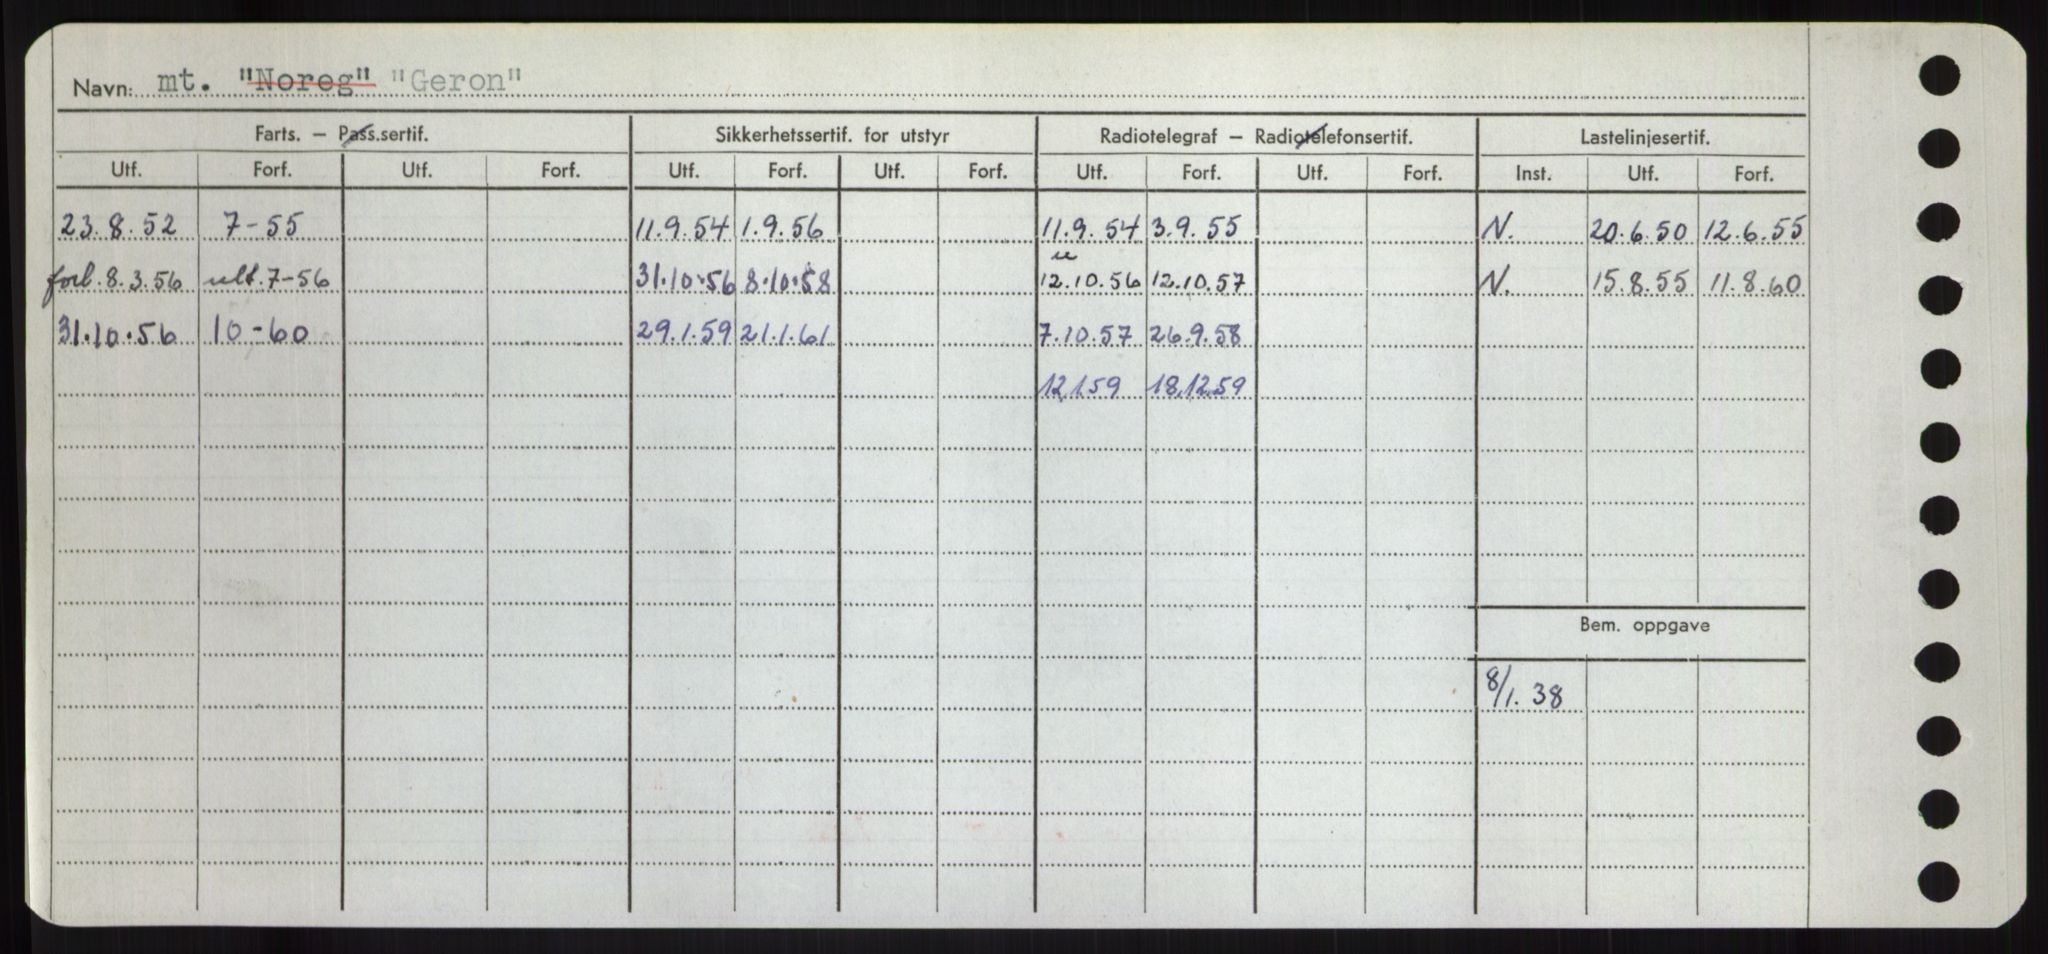 Navn: mt. "Noreg" "Geron"
Farts. – Pass.sertif. Sikkerhetssertif. for utstyr Radiotelegraf – Radiotelefonsertif. Lastelinjesertif.
Utf. Forf. Utf. Forf. Utf. Forf. Utf. Forf. Utf. Forf. Utf. Forf. Inst. Utf. Forf.
23.8.52 7-55 11.9.54 1.9.56 11.9.54 3.9.55 N. 20.6.50 12.6.55
forl. 8.3.56 ult. 7-56 31.10.56 8.10.58 12.10.56 12.10.57 N. 15.8.55 11.8.60
31.10.56 10-60 29.1.59 21.1.61 7.10.57 26.9.58
12,1,59 18,12,59
Bem. oppgave
8/1.38